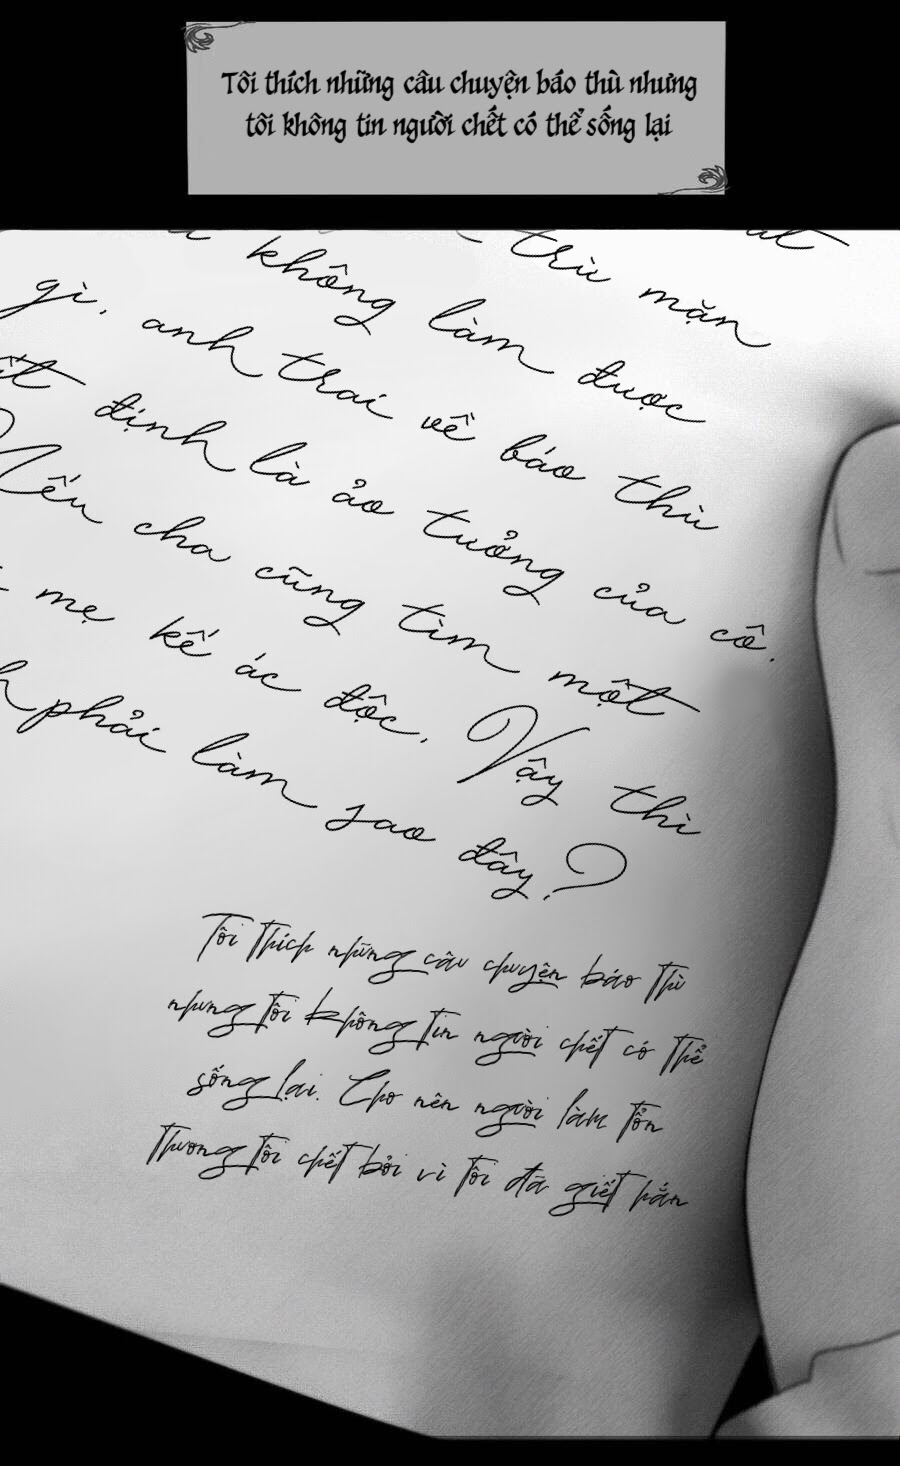 Tôi thích những câu chuyện báo thù nhưng
tôi không tin người chết có thể sống lại
trù mặn
không làm được
gì, anh trai về báo thù
định là ảo tưởng của cô.
Nếu cha cũng tìm một
mẹ kế ác độc. Vậy thì
phải làm sao đây?
Tôi thích những câu chuyện báo thù
nhưng tôi không tin người chết có thể
sống lại. Cho nên người làm tổn
thương tôi chết bởi vì tôi đã giết hắn